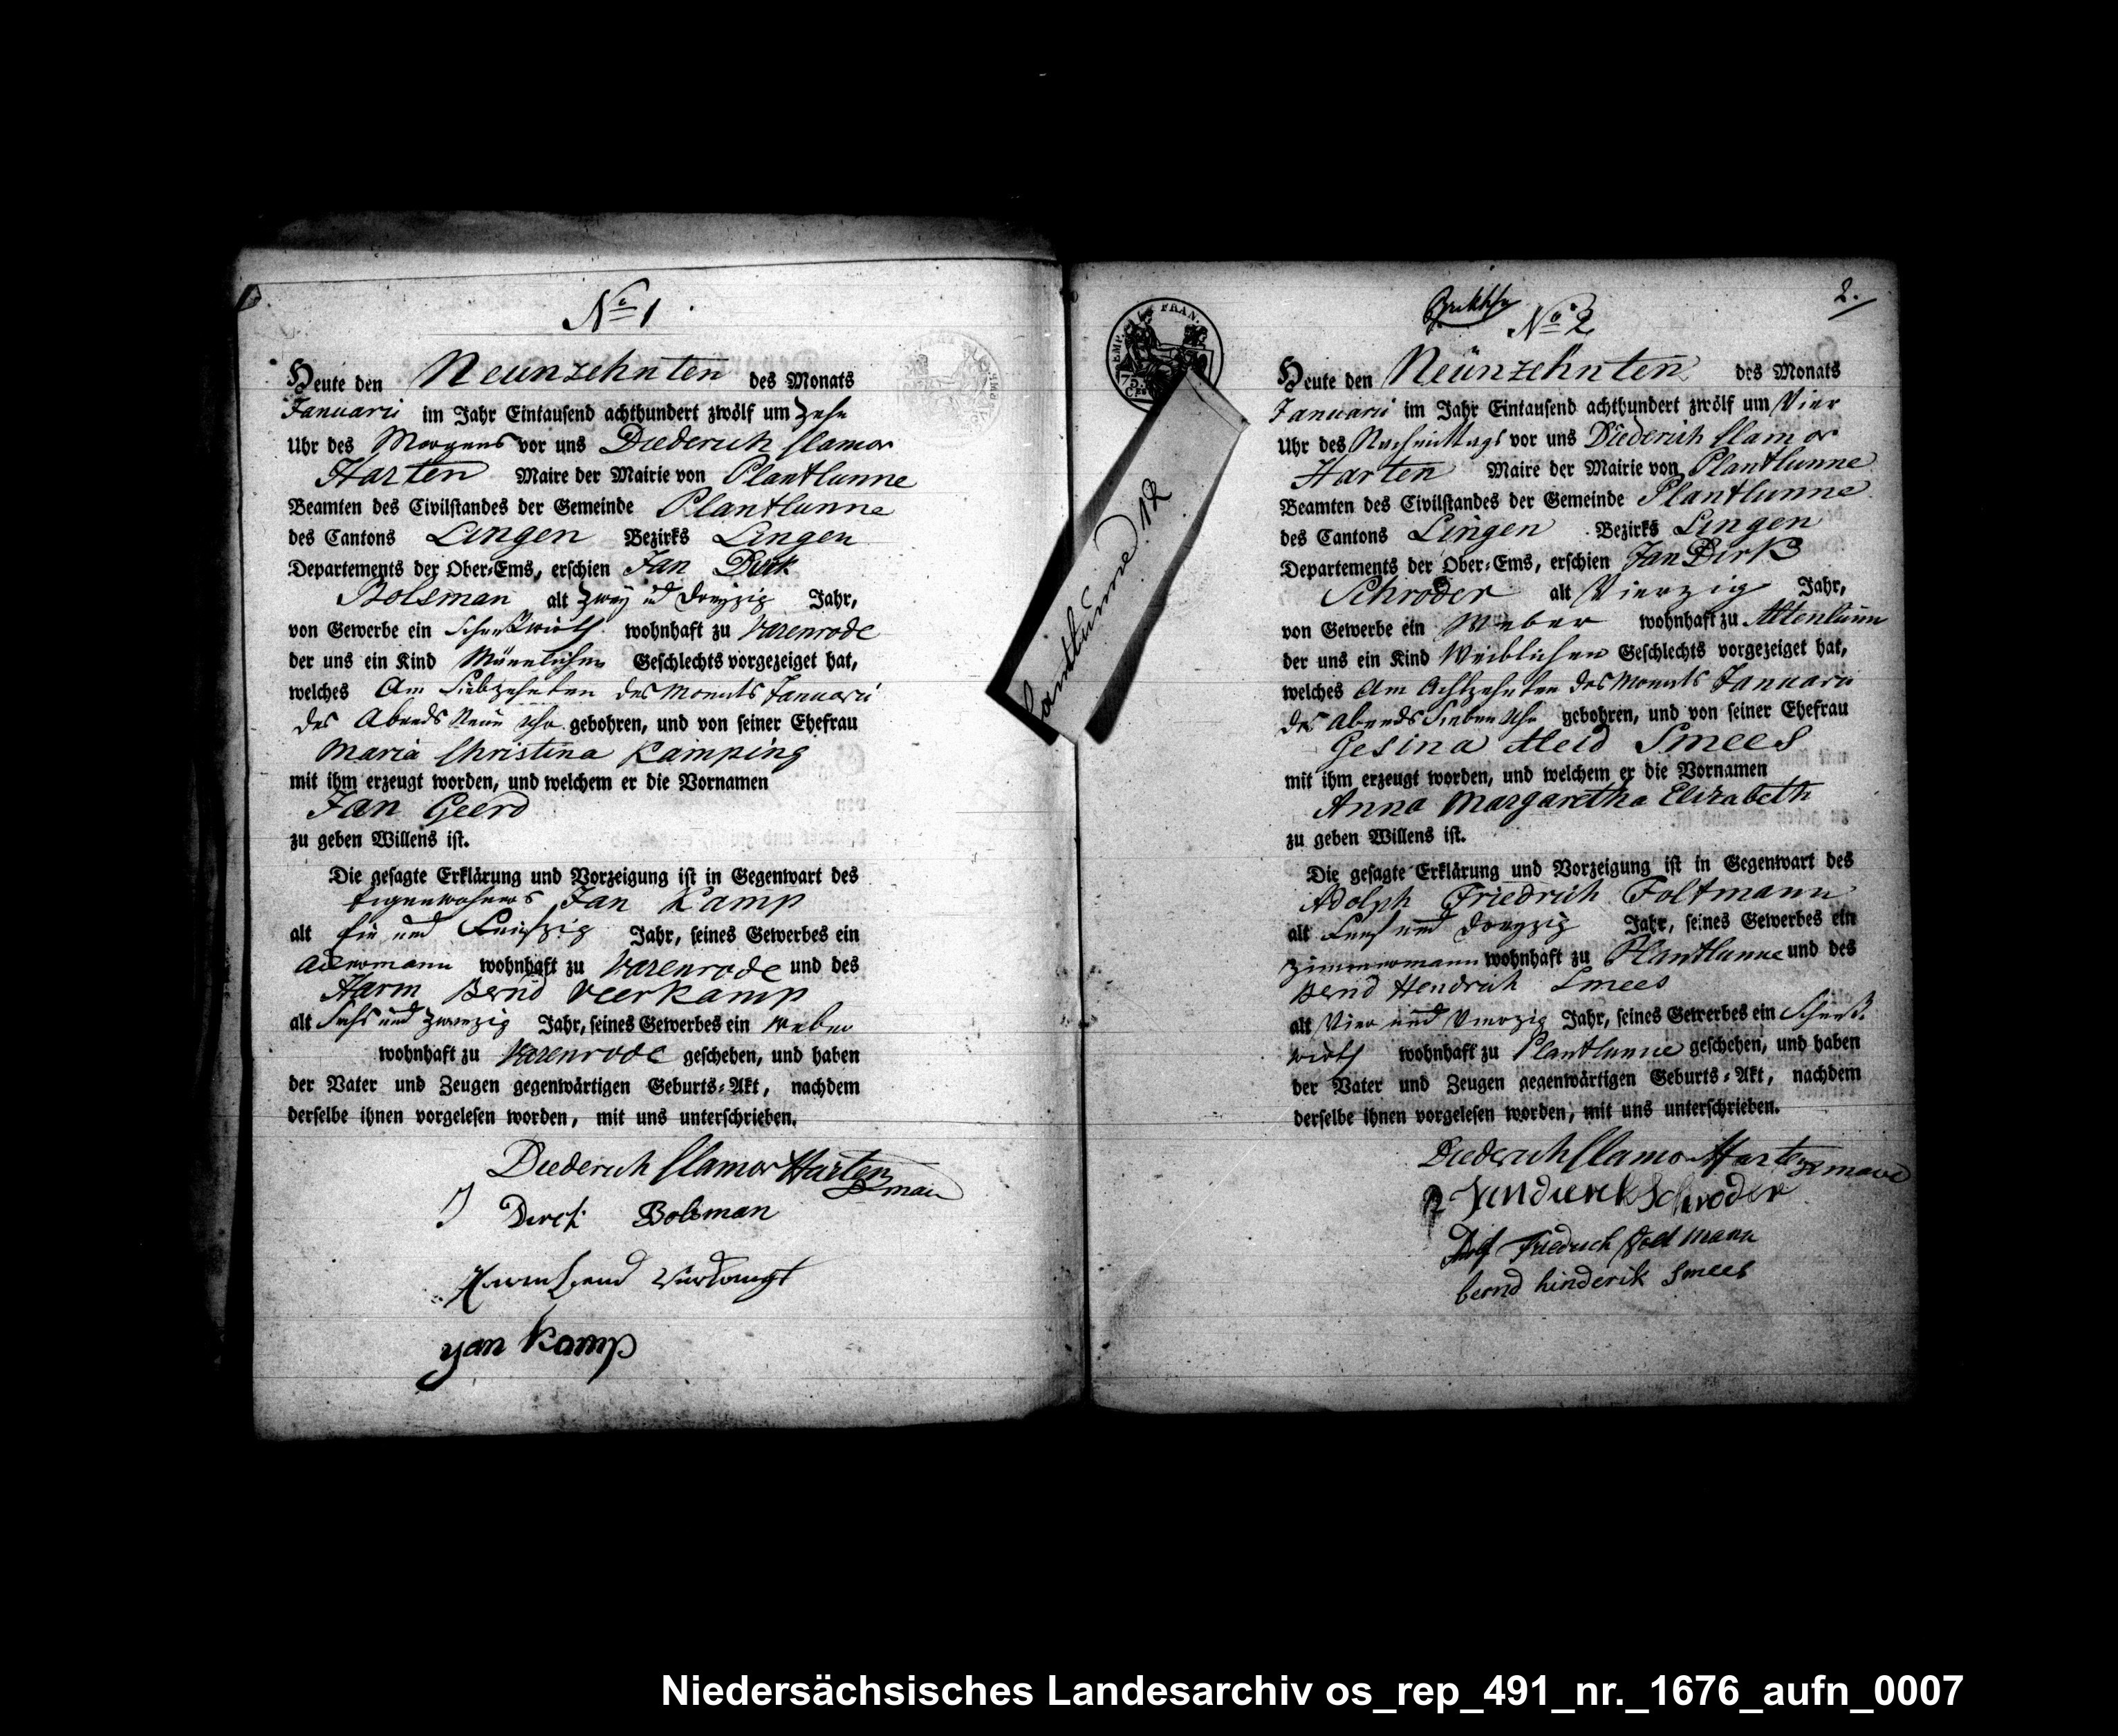 No 1
Heute den Neunzehnten des Monats
Januarii im Jahr Eintausend achthundert zwölf um Zehn
Uhr des Morgens vor uns Diederich Clamor
Harten Maire der Mairie von Plantlunne
Beamten des Civilstandes der Gemeinde Plantlunne
des Cantons Lingen Bezirks Lingen
Departements der Ober-Ems, erschien Jan Dirk
Bolsman alt Zwey und Dreyzig Jahr,
von Gewerbe ein wohnhaft zu Varenrode
der uns ein Kind Mänlichen Geschlechts vorgezeiget hat,
welches Am Siebzehnten des Monats Januarii
des Abends Neun Uhr gebohren, und von seiner Ehefrau
Maria Christina Kamping
mit ihm erzeugt worden, und welchem er die Vornamen
Jan Geerd
zu geben Willens ist.
Die gesagte Erklärung und Vorzeigung ist in Gegenwart des
Jan Kamp
alt und Jahr, seines Gewerbes ein
Ackermann wohnhaft zu Varenrode und des
Harm Bernd Veerkamp
alt Sechs und Zwanzig Jahr, seines Gewerbes ein Weber
wohnhaft zu Varenrode geschehen, und haben
der Vater und Zeugen gegenwärtigen Geburts-Akt, nachdem
derselbe ihnen vorgelesen worden, mit uns unterschrieben.
Diederich Clamor Harten
J Direk Bolsman
yan kamp
EMP. FRAN.
75
2.
No 2
Heute den Neünzehnten des Monats
Januarii im Jahr Eintausend achthundert zwölf um Vier
Uhr des Nachmittags vor uns Diederich Clamor
Harten Maire der Mairie von Plantlunne
Beamten des Civilstandes der Gemeinde Plantlunne
des Cantons Lingen Bezirks Lingen
Departements der Ober-Ems, erschien Jan Dirk
Schroder alt Vierzig Jahr,
von Gewerbe ein Weber wohnhaft zu Altenlünn
der uns ein Kind Weiblichen Geschlechts vorgezeiget hat,
welches Am Achtzehnten des Monats Januarii
des Abends Sieben Uhr gebohren, und von seiner Ehefrau
Gesina Aleid Smees
mit ihm erzeugt worden, und welchem er die Vornamen
Anna Margaretha Elizabeth
zu geben Willens ist.
Die gesagte Erklärung und Vorzeigung ist in Gegenwart des
Adolph Friedrich Foltmann
alt und Dreyzig Jahr, seines Gewerbes ein
Zimmermann wohnhaft zu Plantlunne und des
Bernd Hendrich Smees
alt Vier und Vierzig Jahr, seines Gewerbes ein
wohnhaft zu Plantlunne geschehen, und haben
der Vater und Zeugen gegenwärtigen Geburts-Akt, nachdem
derselbe ihnen vorgelesen worden, mit uns unterschrieben.
Diederich Clamor Harten
Jan dierek Schroder
Adolf Friedrich Voltmann
bernd hinderik Smees
Plantlünne 12
Niedersächsisches Landesarchiv os_rep_491_nr._1676_aufn_0007